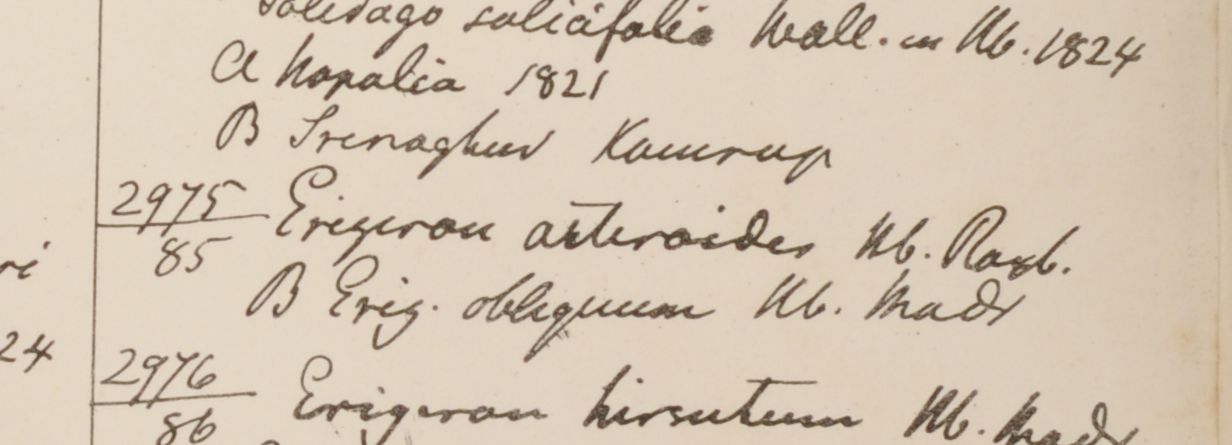 Solidago salicifolia Wall. in Hb. 1824
A Napalia 1821
B Srenaghur Kamrup
2975 Erigeron asteroides Hb. Roxb.
85
B Erig. obliquum Hb. Madr
24
2976 Erigeron hirsutum Hb. Madr
86